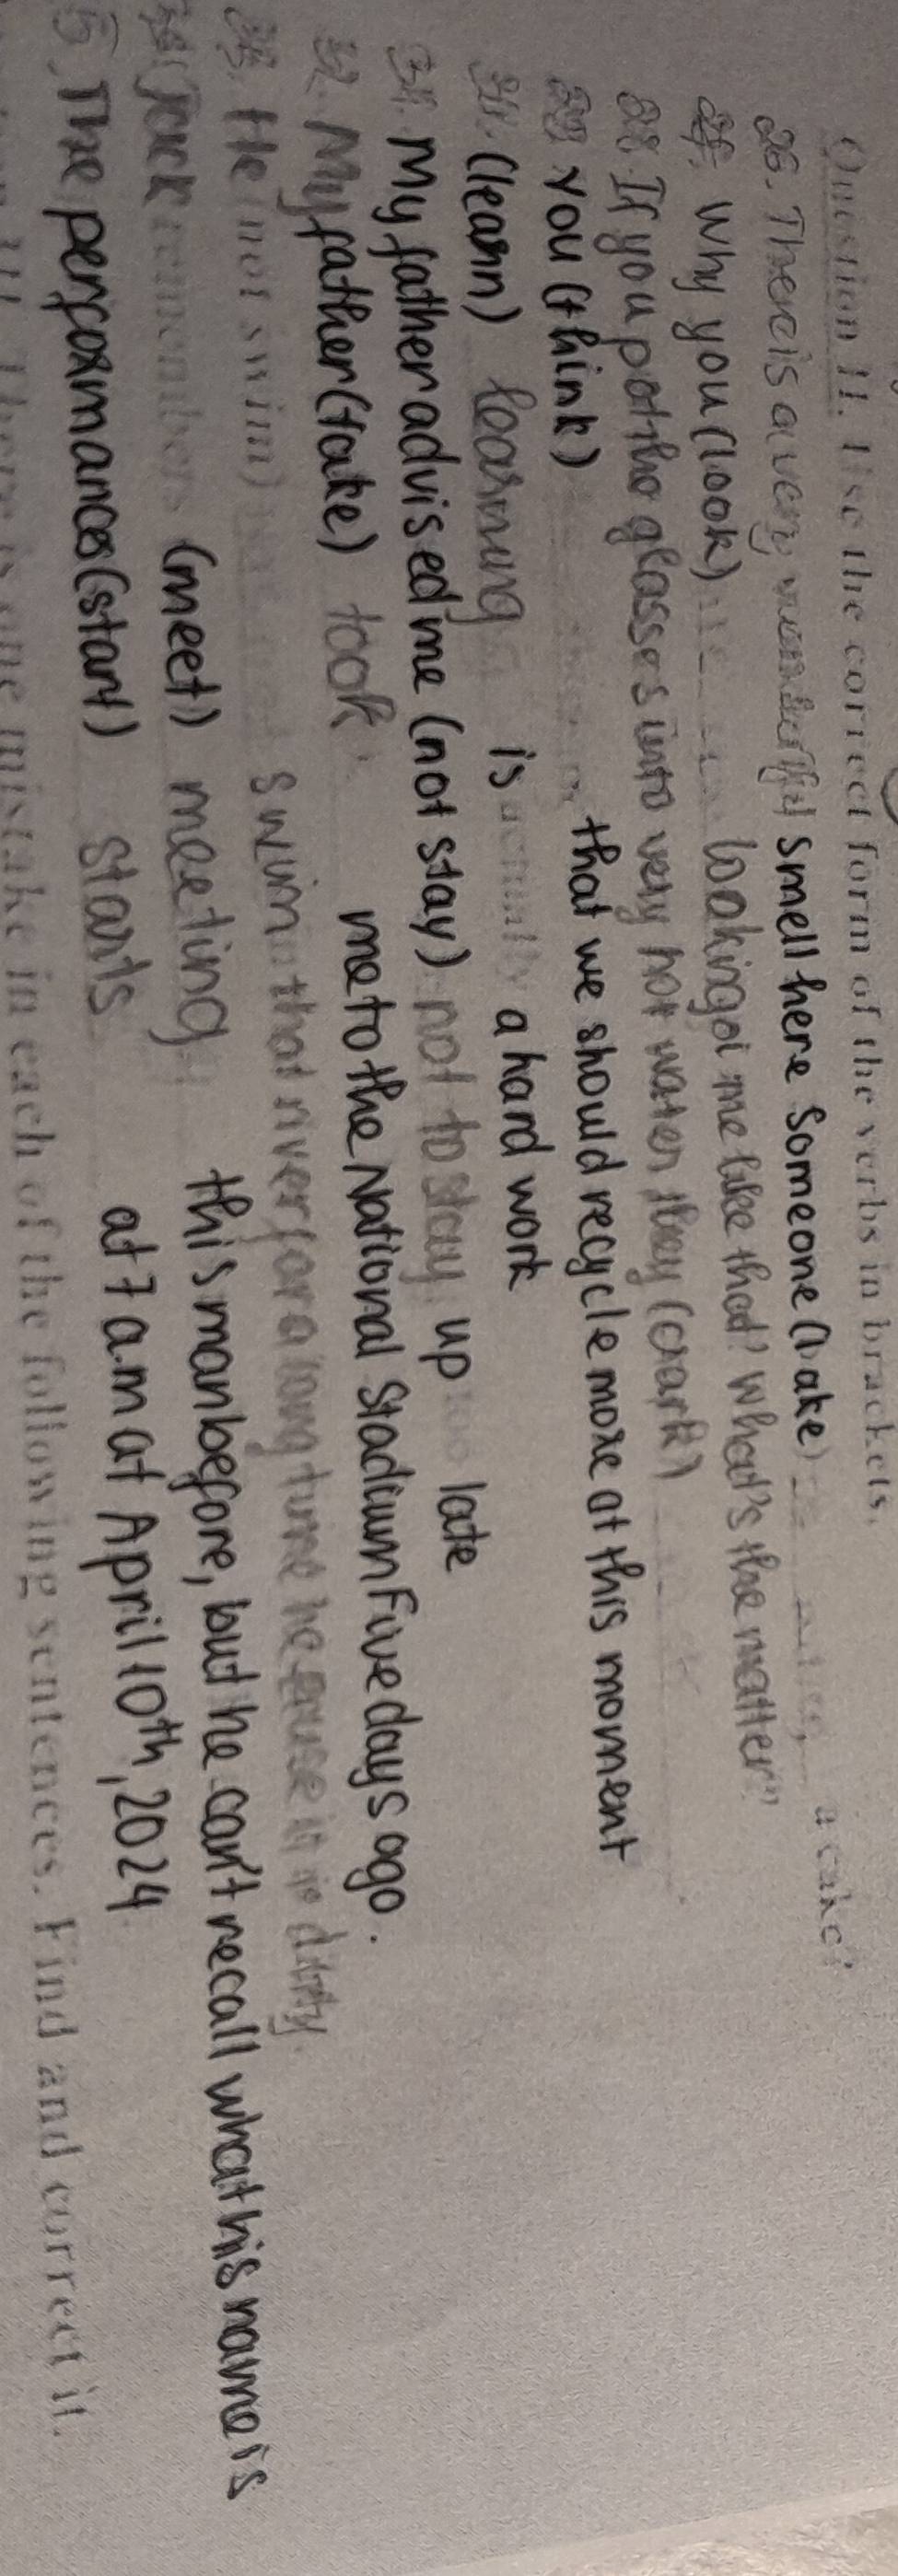 Question II. Use the correct form of the verbs in brackets.
26. There is a very wonderful smell here Someone (bake) a cake?
27. Why you (look) looking at me like that? What's the matter"
28. If you pot the glasses into very hot water they (crack)
29 you (think) that we should recycle more at this moment
(learn) learning is actually a hard work
My father advised me (not stay) not to stay up too late
32. My father (take) took me to the National Stadium Five days ago.
He (not swim) swim that river for a long time he it is dirty.
Jack remembers (meet) meeting this man before, but he can't recall what his name is
5. The performances (start) starts at 7 a.m at April 10th, 2024
there is one mistake in each of the following sentences. Find and correct it.